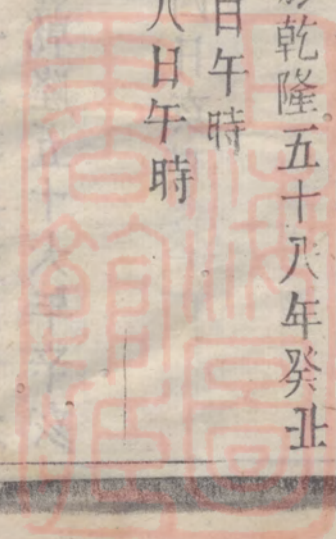 乾隆五十八年癸丑
日午時
八日午時